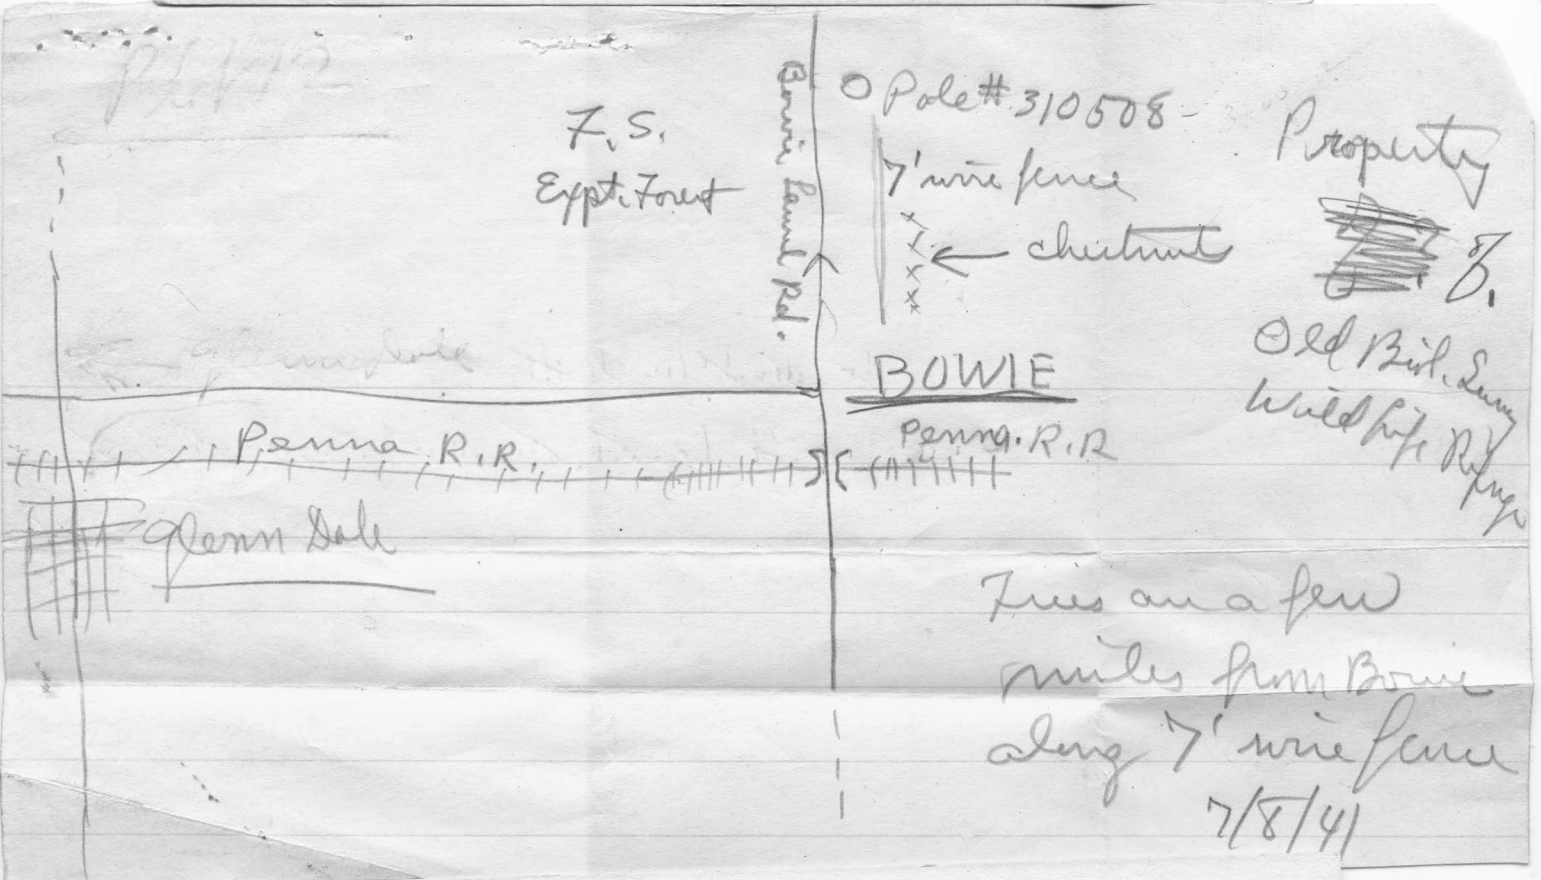 F. S.
Expt. Forest
Bowie Laurel Rd.
O Pole # 310508-
7' wire fence
x
x
x
x
← chestnuts
Property
of.
Old Biol. Survey
Wild Life Refuge
BOWIE
Penna. R.R.
Penna. R.R
Glenn Dale
Trees are a few
miles from Bowie
along 7' wire fence
7/8/41